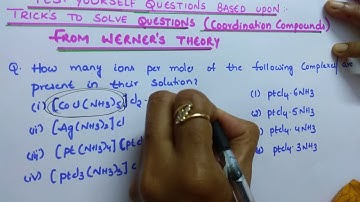 TEST YOURSELF QUESTIONS BASED UPON
TRICKS TO SOLVE QUESTIONS (Coordination Compounds)
FROM WERNER'S THEORY
Q. How many ions per moles of the following Complexes are
present in their solution?
(i) [CoCl(NH3)5] cl2
(ii) [Ag(NH3)2] cl
(iii) [Pt(NH3)4] [Pt
(iv) [Ptcl3(NH3)3] c
(1) ptcl4. 6NH3
(2) ptcl4. 5NH3
ptcl4. 4NH3
ptcl4. 3NH3